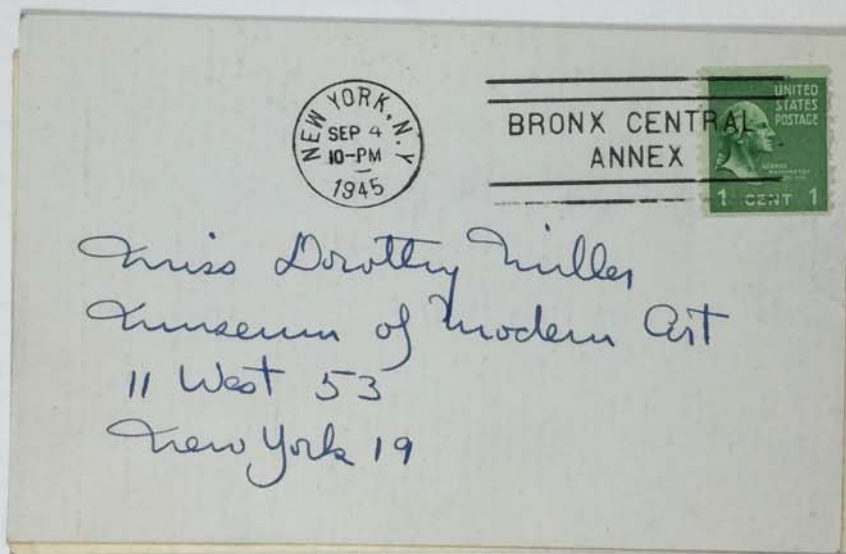 NEW YORK, N.Y.
SEP 4
10-PM
1945
BRONX CENTRAL
ANNEX
UNITED
STATES
POSTAGE
1 CENT 1
Miss Dorothy Miller
Museum of Modern Art
11 West 53
New York 19